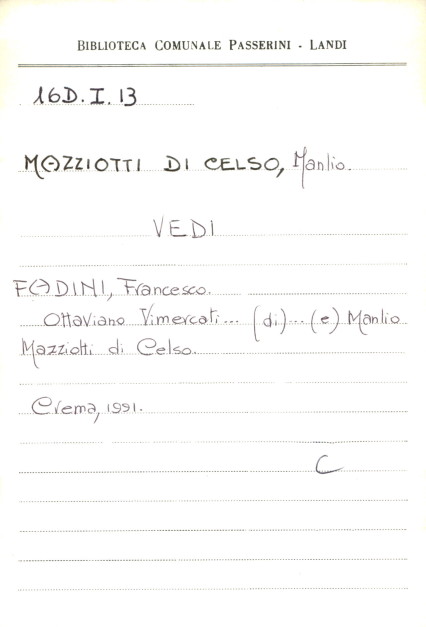 BIBLIOTECA COMUNALE PASSERINI - LANDI
16D.I.13
MAZZIOTTI DI CELSO, Manlio.
VEDI
FADINI, Francesco.
Ottaviano Vimercati... (di)... (e) Manlio
Mazziotti di Celso.
Crema, 1991.
C